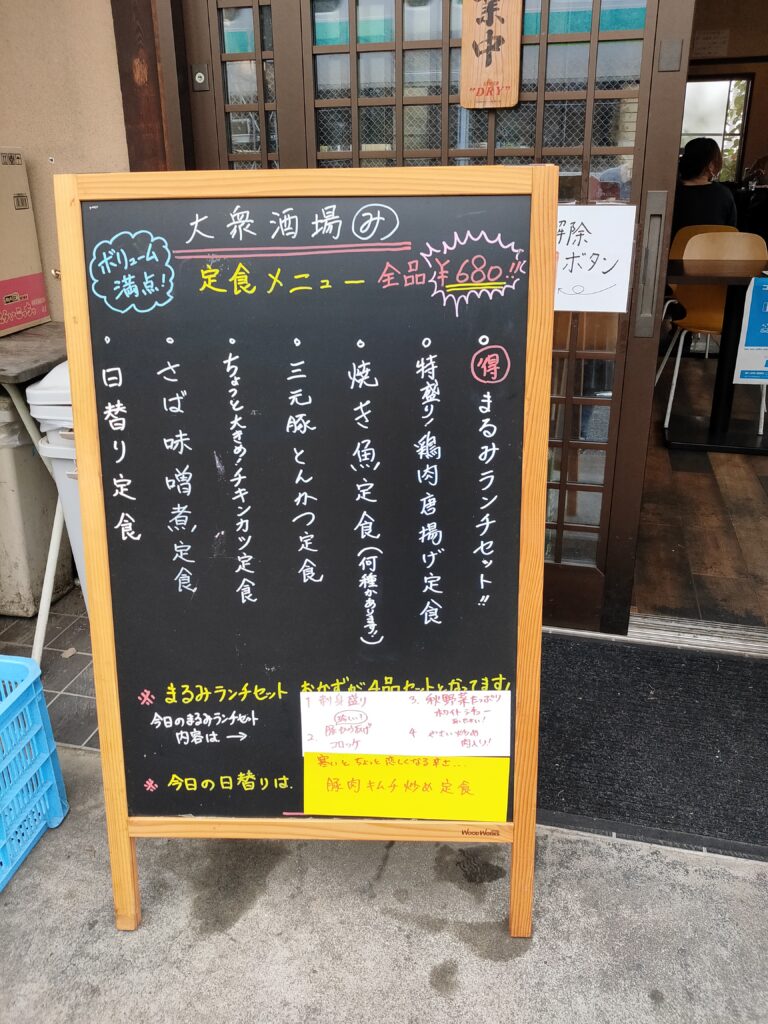 業中
"DRY"
解除
ボタン
大衆酒場 み
ボリューム
満点!
定食メニュー 全品 ¥680!!
・得 まるみランチセット!!
・特盛り!鶏肉唐揚げ定食
・焼き魚定食(何種かあります!)
・三元豚とんかつ定食
・ちょっと大きめ!チキンカツ定食
・さば味噌煮定食
・日替り定食
※ まるみランチセット おかずが4品セットとなってます!
今日のまるみランチセット
内容は→
1 刺身盛り
2.
コロッケ
3. 秋野菜たっぷり
ホワイトシチュー
4 やさい炒め
肉入り!
※ 今日の日替りは
寒いとちょっと恋しくなる辛さ...
豚肉キムチ炒め定食
WOODWORKS